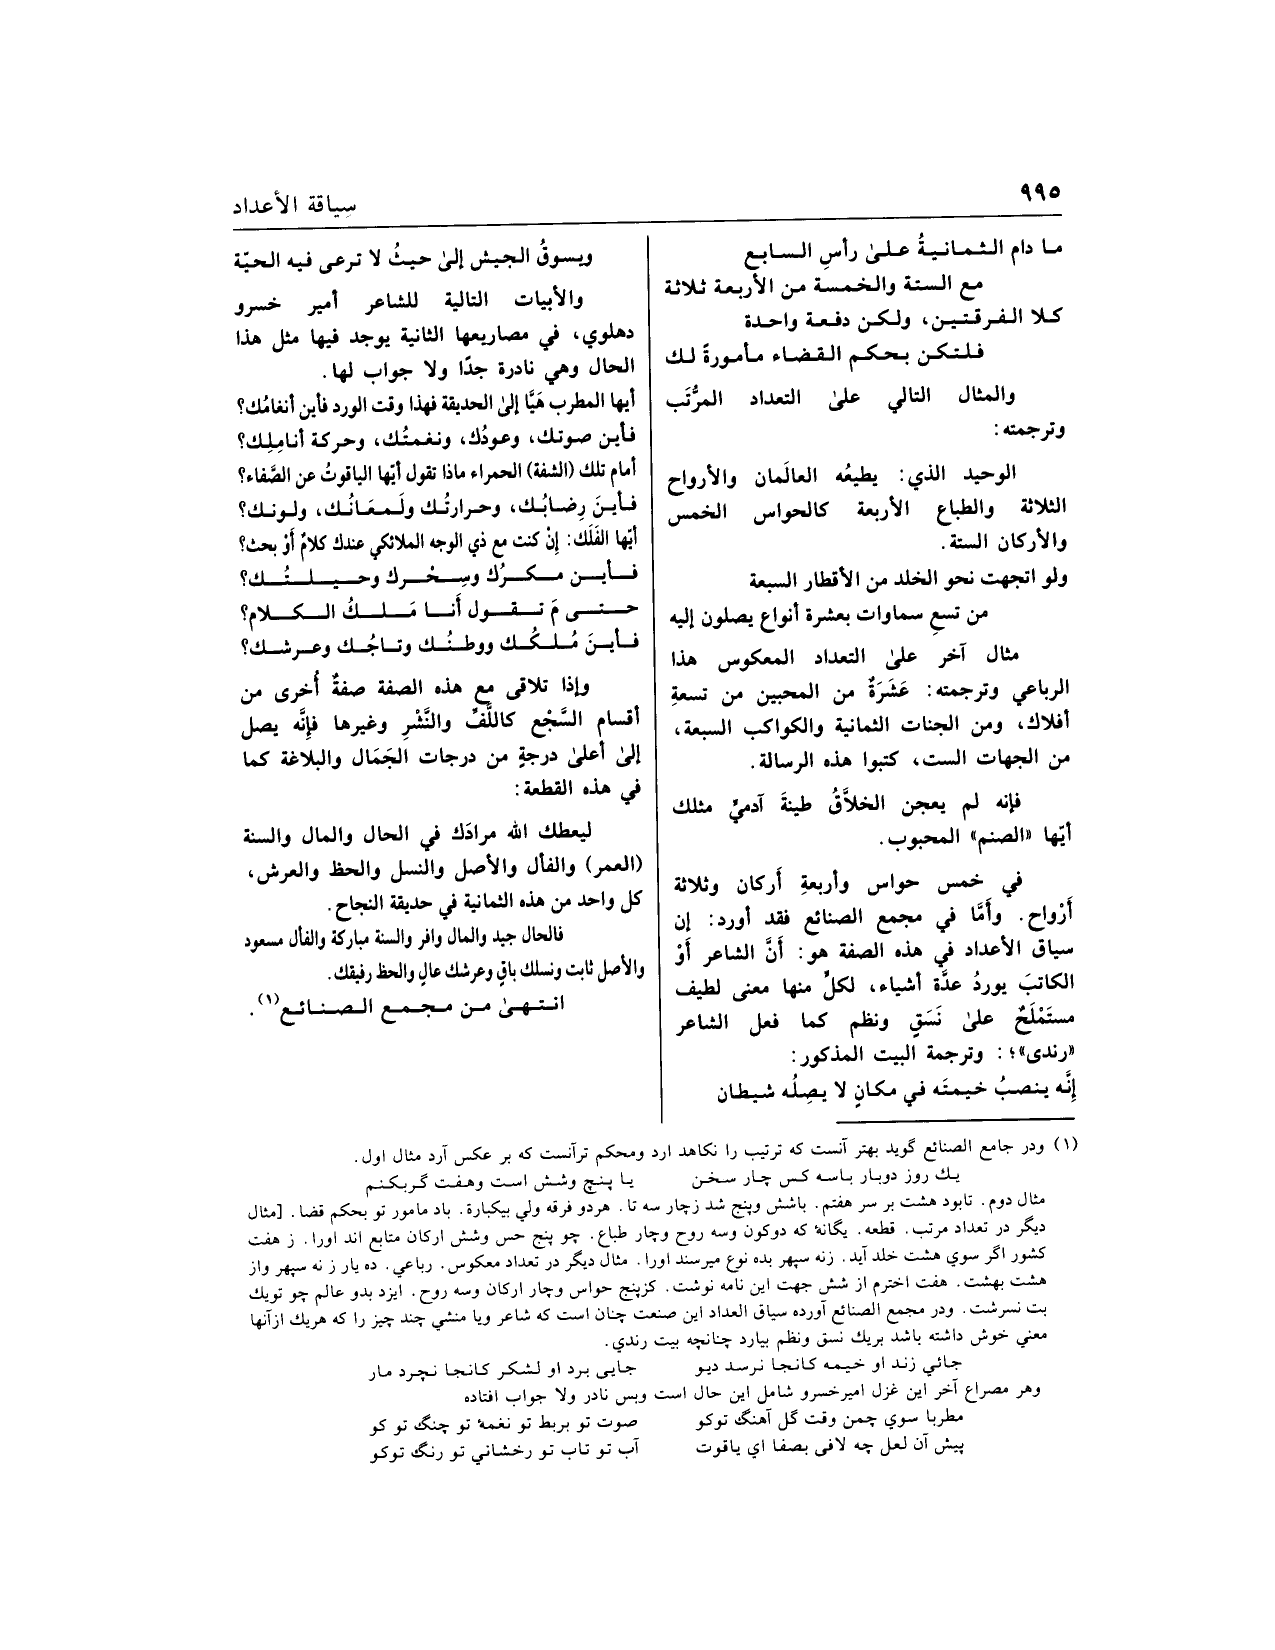 ٩٩٥
سِياقة الأعداد
ما دام الثمانيةُ علىٰ رأسِ السابع
مع الستة والخمسة من الأربعة ثلاثة
كلا الفرقتين، ولكن دفعة واحدة
فلتكن بحكم القضاء مأمورةً لك
والمثال التالي علىٰ التعداد المرُتَّب
وترجمته:
الوحيد الذي: يطيعُه العالَمان والأرواح
الثلاثة والطباع الأربعة كالحواس الخمس
والأركان الستة.
ولو اتجهت نحو الخلد من الأقطار السبعة
من تسعِ سماوات بعشرة أنواع يصلون إليه
مثال آخر علىٰ التعداد المعكوس هذا
الرباعي وترجمته: عَشَرَةٌ من المحبين من تسعةِ
أفلاك، ومن الجنات الثمانية والكواكب السبعة،
من الجهات الست، كتبوا هذه الرسالة.
فإنه لم يعجن الخلاَّقُ طينةَ آدميٍّ مثلك
أيّها «الصنم» المحبوب.
في خمس حواس وأربعةِ أَركان وثلاثة
أَرْواح. وأَمَّا في مجمع الصنائع فقد أورد: إن
سياق الأعداد في هذه الصفة هو: أَنَّ الشاعر أَوْ
الكاتبَ يوردُ عدَّة أشياء، لكلِّ منها معنى لطيف
مستَمْلَحٌ علىٰ نَسَقٍ ونظم كما فعل الشاعر
«رندى»؛ : وترجمة البيت المذكور:
إنَّه ينصبُ خيمتَه في مكانٍ لا يصِلُه شيطان
ويسوقُ الجيش إلىٰ حيثُ لا ترعى فيه الحيّة
والأبيات التالية للشاعر أمير خسرو
دهلوي، في مصاريعها الثانية يوجد فيها مثل هذا
الحال وهي نادرة جدًا ولا جواب لها.
أيها المطرب هَيَّا إلىٰ الحديقة فهذا وقت الورد فأين أنغامُك؟
فأين صوتك، وعودُك، ونغمتُك، وحركة أنامِلِك؟
أمام تلك (الشفة) الحمراء ماذا تقول أيّها الياقوتُ عن الصَّفاء؟
فأينَ رِضابُك، وحرارتُك ولَمعَانُك، ولونك؟
أيّها الفَلَك: إنْ كنت مع ذي الوجه الملائكي عندك كلامٌ أوْ بحث؟
فأين مكرُك وسِحْرك وحيلتُك؟
حتى مَ تقول أَنا مَلكُ الكلام؟
فأينَ مُلكُك ووطنُك وتاجُك وعرشك؟
وإذا تلاقى مع هذه الصفة صفةٌ أُخرى من
أقسام السَّجْع كاللَّفِّ والنَّشْرِ وغيرها فإِنَّه يصل
إلىٰ أعلىٰ درجةٍ من درجات الجَمَال والبلاغة كما
في هذه القطعة:
ليعطك الله مرادَك في الحال والمال والسنة
(العمر) والفأل والأصل والنسل والحظ والعرش،
كل واحد من هذه الثمانية في حديقة النجاح.
فالحال جيد والمال وافر والسنة مباركة والفأل مسعود
والأصل ثابت ونسلك باقٍ وعرشك عالٍ والحظ رفيقك.
انتهىٰ من مجمع الصنائع(١).
(١) ودر جامع الصنائع گويد بهتر آنست كه ترتيب را نكاهد ارد ومحكم ترآنست كه بر عكس آرد مثال اول.
يك روز دوبار باسه كس چار سخن يا پنج وشش است وهفت گربكنم
مثال دوم. تابود هشت بر سر هفتم. باشش وپنج شد زچار سه تا. هردو فرقه ولي بيكبارة. باد مامور تو بحكم قضا. [مثال
ديگر در تعداد مرتب. قطعه. يگانهٔ كه دوكون وسه روح وچار طباع. چو پنج حس وشش اركان متابع اند اورا. ز هفت
كشور اگر سوي هشت خلد آيد. زنه سپهر بده نوع ميرسند اورا. مثال ديگر در تعداد معكوس. رباعي. ده يار ز نه سپهر واز
هشت بهشت. هفت اخترم از شش جهت اين نامه نوشت. كزپنج حواس وچار اركان وسه روح. ايزد بدو عالم چو تويك
بت نسرشت. ودر مجمع الصنائع آورده سياق العداد اين صنعت چنان است كه شاعر ويا منشي چند چيز را كه هريك ازآنها
معني خوش داشته باشد بريك نسق ونظم بيارد چنانچه بيت رندي.
جائي زند او خيمه كانجا نرسد ديو جايى برد او لشكر كانجا نچرد مار
وهر مصراع آخر اين غزل اميرخسرو شامل اين حال است وبس نادر ولا جواب افتاده
مطربا سوي چمن وقت گل آهنگ توكو صوت تو بربط تو نغمهٔ تو چنگ تو كو
پيش آن لعل چه لافى بصفا اي ياقوت آب تو تاب تو رخشاني تو رنگ توكو